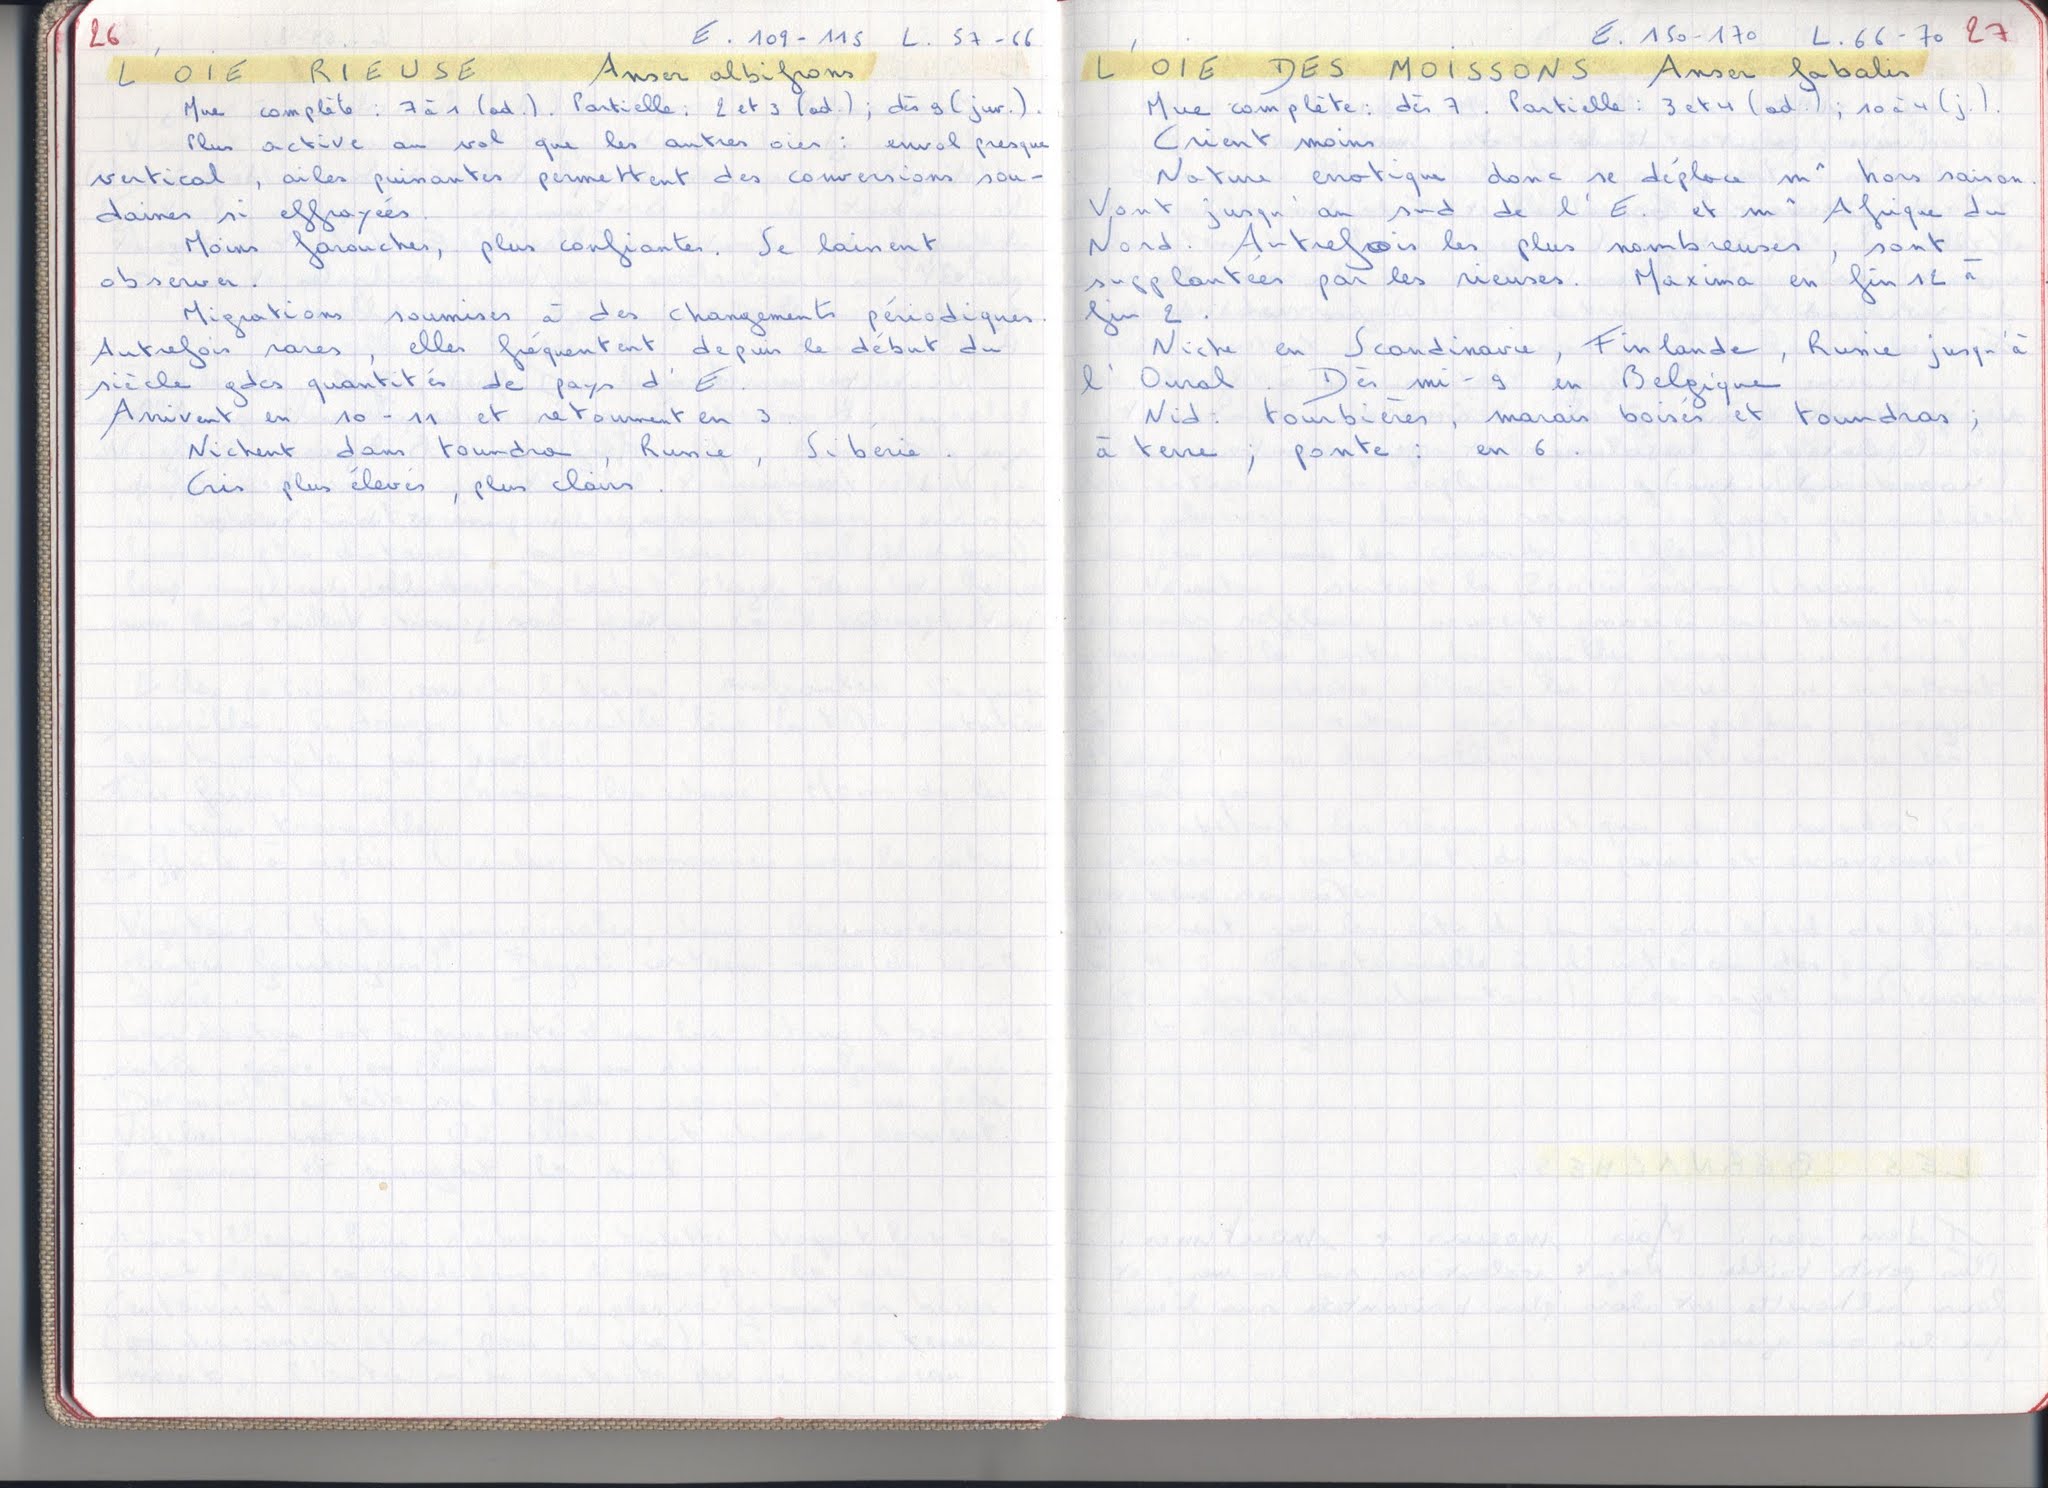 26
E. 109-115 L. 57-66
L'OIE RIEUSE Anser albifrons
Mue complète : 7 à 1 (ad.). Partielle : 2 et 3 (ad.) ; dès 9 (juv.).
Plus active au vol que les autres oies : envol presque
vertical, ailes puissantes permettent des conversions sou-
daines si effrayées.
Moins farouches, plus confiantes. Se laissent
observer.
Migrations soumises à des changements périodiques.
Autrefois rares, elles fréquentent depuis le début du
siècle gdes quantités de pays d'E.
Arrivent en 10-11 et retournent en 3
Nichent dans toundra, Russie, Sibérie.
Cris plus élevés, plus clairs.
E. 150-170 L. 66-70 27
L'OIE DES MOISSONS Anser fabalis
Mue complète : dès 7. Partielle : 3 et 4 (ad.) ; 10 à 4 (j.).
Crient moins
Nature erratique donc se déplace m^ hors saison.
Vont jusqu'au sud de l'E. et m^ Afrique du
Nord. Autrefois les plus nombreuses, sont
supplantées par les rieuses. Maxima en fin 12 à
fin 2.
Niche en Scandinavie, Finlande, Russie jusqu'à
l'Oural. Dès mi-9 en Belgique
Nid : tourbières, marais boisés et toundras ;
à terre ; ponte : en 6.